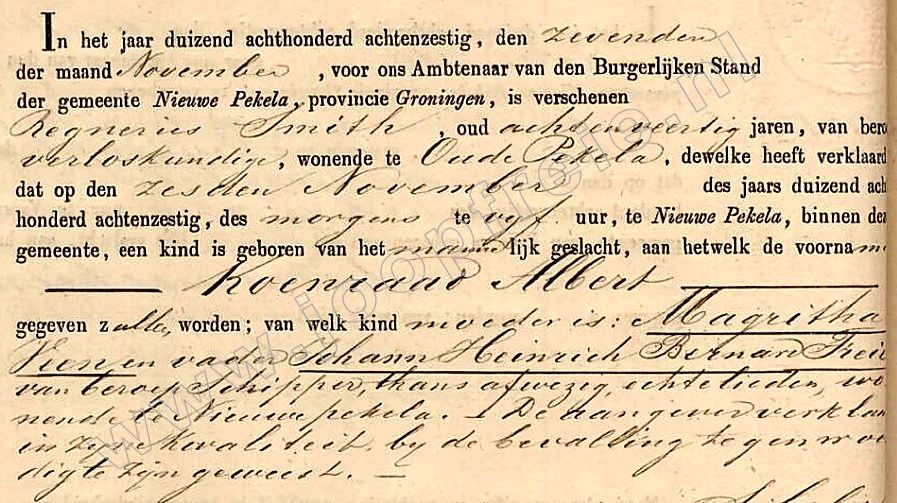 In het jaar duizend achthonderd achtenzestig, den zevenden
der maand November, voor ons Ambtenaar van den Burgerlijken Stand
der gemeente Nieuwe Pekela, provincie Groningen, is verschenen
Regnerus Smith, oud achtenveertig jaren, van bero
verloskundige, wonende te Oude Pekela, dewelke heeft verklaard
dat op den zesden November des jaars duizend ach
honderd achtenzestig, des morgens te vyf uur, te Nieuwe Pekela, binnen de
gemeente, een kind is geboren van het mannelijk geslacht, aan hetwelk de voorna
Koenraad Albert
gegeven zullen worden; van welk kind moeder is: Magritha
Veen en vader Johann Heinrich Bernard Frei
van beroep Schipper, thans afwezig, echtelieden, wo
nende te Nieuwe pekela. – De aangever verklaar
in zyne kwaliteit by de bevalling tegenwoor
digte zyn geweest. –
www.jooptreie.nl